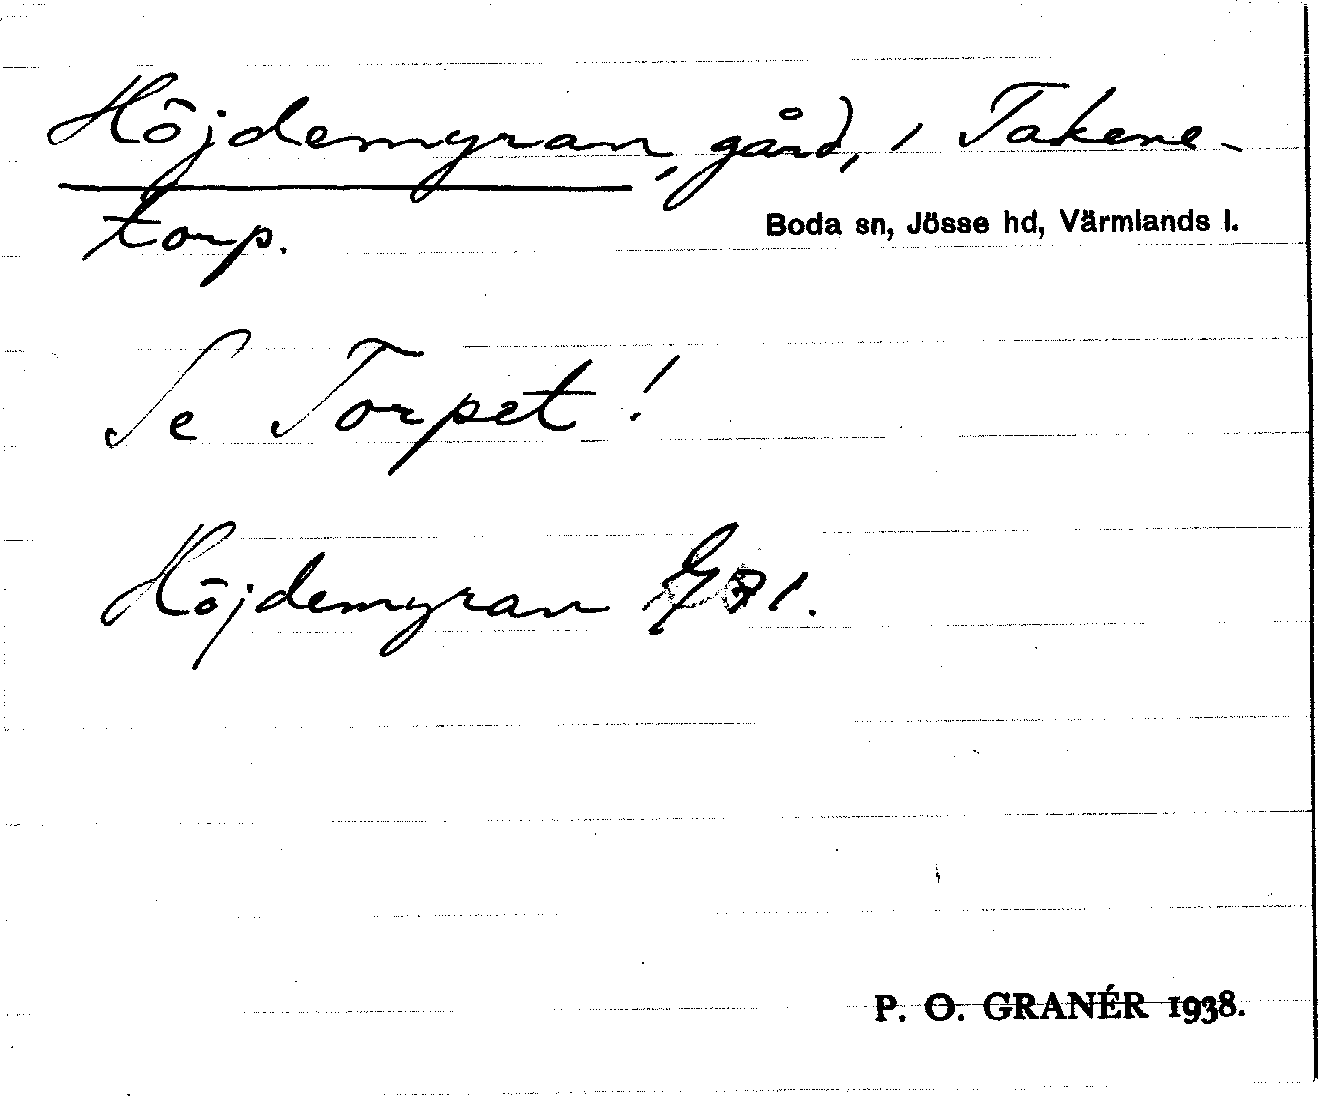 Höjdemyran, gård, i Takene-
torp.
Boda sn, Jösse hd, Värmlands l.
Se Torpet!
Höjdemyran
P. O. GRANÉR 1938.